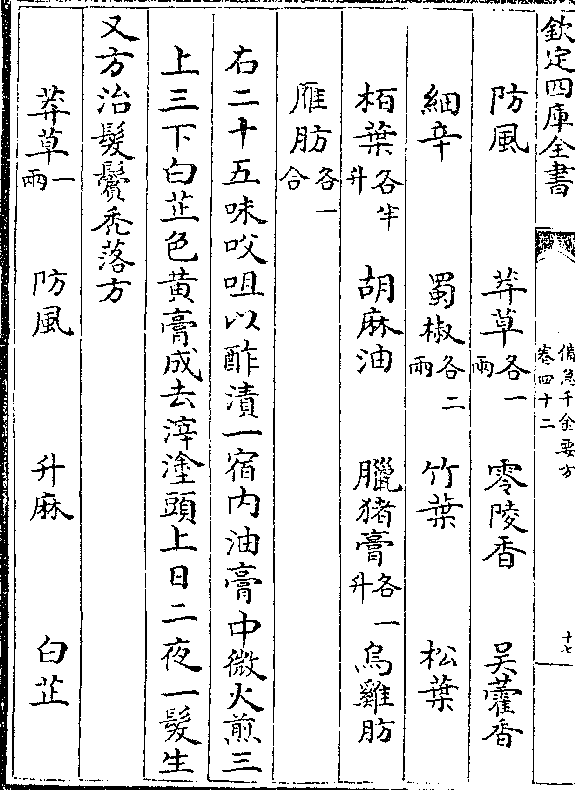 欽定四庫全書
備急千金要方
卷四十二
十七
防風 莽草各一兩 零陵香 吴藿香
細辛 蜀椒各二兩 竹葉 松葉
栢葉各半升 胡麻油 臘猪膏各一升 烏雞肪
雁肪各一合
右二十五味㕮咀以酢漬一宿内油膏中微火煎三
上三下白芷色黄膏成去滓塗頭上日二夜一髮生
又方治髮鬢秃落方
莽草一兩 防風 升麻 白芷